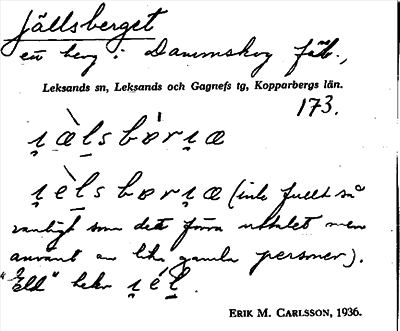 Jällsberget
ett berg i Dammskog fäb.,
Leksands sn, Leksands och Gagnefs tg, Kopparbergs län.
173.
ı̣æ̀lsbørı̣æ
ı̣èlsbørı̣æ (inte fullt så
vanligt som det förra uttalet men
använt av lika gamla personer).
"Eld" heter ı̣él.
ERIK M. CARLSSON, 1936.